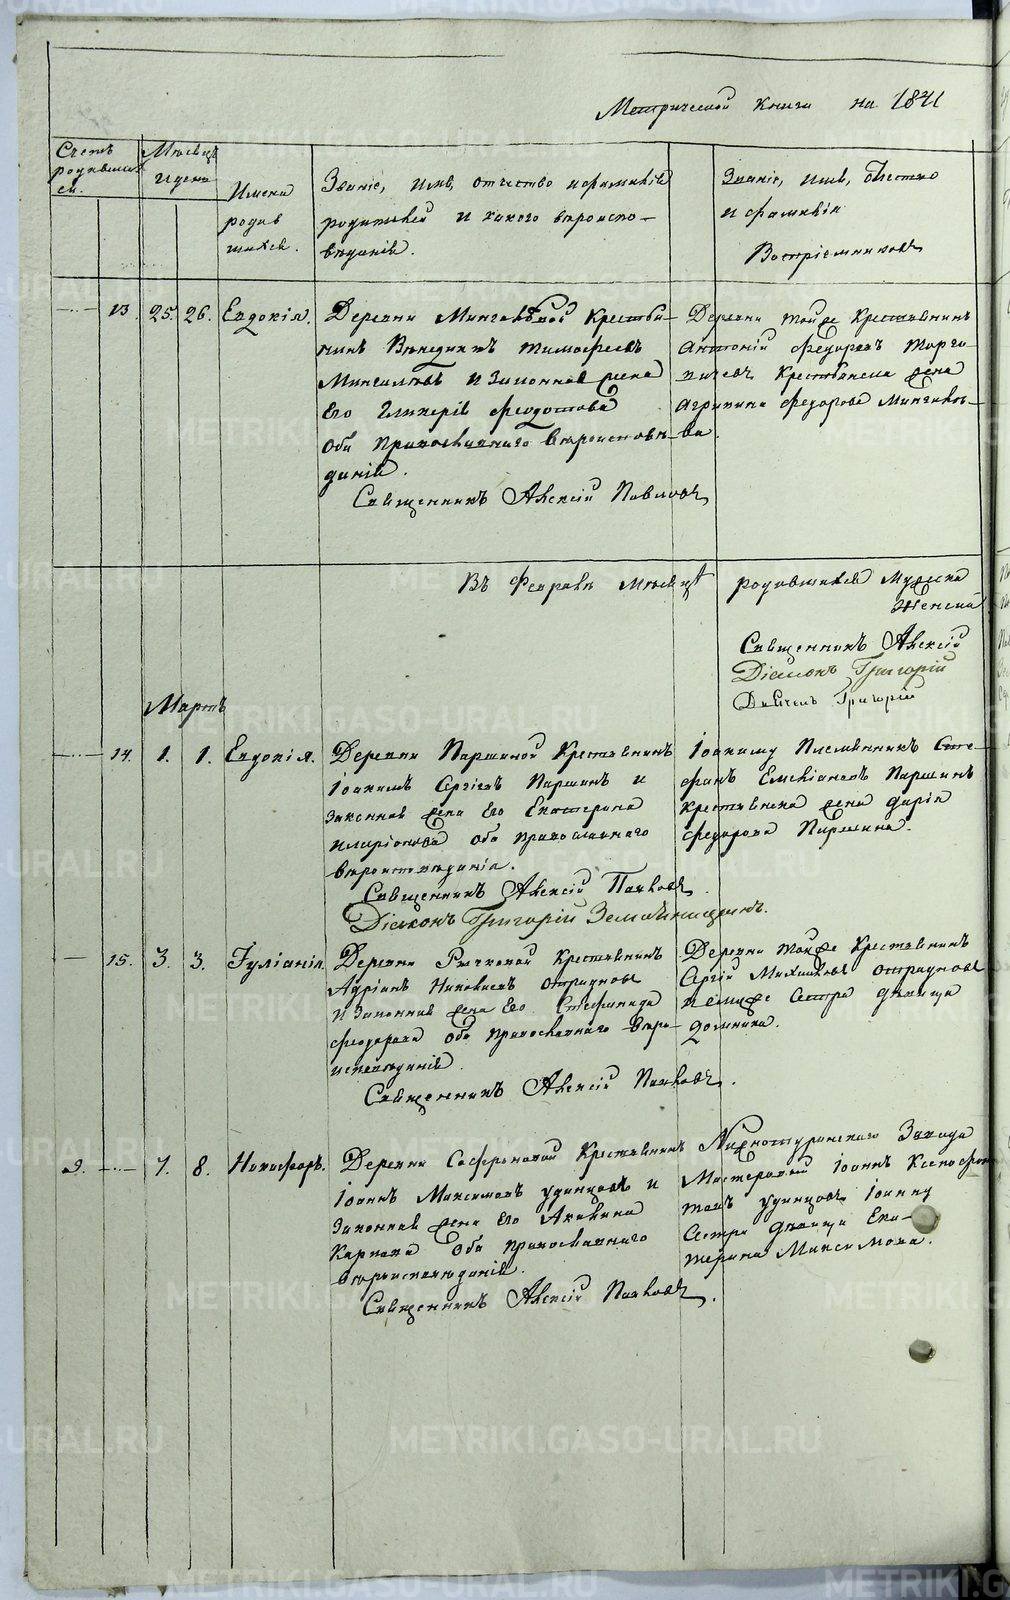 Метрической книги на 1841
Счетъ родившихся.
Мѣсяцъ и день
Имена родившихся.
Званіе, имя, отчество и фамилія
родителей и какого вѣроиспо-
вѣданія.
Званіе, имя, отчество
и фамилія
Воспріемниковъ
13. 25. 26. Евдокія.
Деревни крестья-
нинъ Венедиктъ Тимофеевъ
и законная жена
его Гликерія Федотова
оба православнаго вѣроисповѣ-
данія.
Священникъ Алексій
Деревни той же крестьянинъ
Антоній Федоровъ
крестьянска жена
Агрипина Федорова
ва.
Въ Февралѣ мѣсяцѣ родившихся мужеска
женска
Священникъ Алексій
Діаконъ Григорій
Дьячекъ Григорій
Мартъ
14. 1. 1. Евдокія.
Деревни Паршиной крестьянинъ
Іоакимъ Сергіевъ Паршинъ и
законная жена его Екатерина
Иларіонова оба православнаго
вѣроисповѣданія.
Священникъ Алексій
Діаконъ Григорій
Іоакиму племянникъ Сте-
фанъ Паршинъ
крестьянска жена Дарія
Федорова Паршина.
15. 3. 3. Іуліанія.
Деревни крестьянинъ
Адріанъ Отрадновъ
и законная жена его Стефанида
Феодорова оба православнаго вѣро-
исповѣданія.
Священникъ Алексій
Деревни той же крестьянинъ
Сергій Михайловъ Отрадновъ
и ему же сестра дѣвица
Домника.
9. 7. 8. Никифоръ.
Деревни Сафроновой крестьянинъ
Іоаннъ Максимовъ Удинцовъ и
законная жена его Акилина
Карпова оба православнаго
вѣроисповѣданія.
Священникъ Алексій
Нижнотуринскаго завода
мастеровой Іоаннъ Ксенофон-
товъ Удинцовъ Іоанну
сестра дѣвица Ека-
терина Максимова.
METRIKI.GASO-URAL.RU